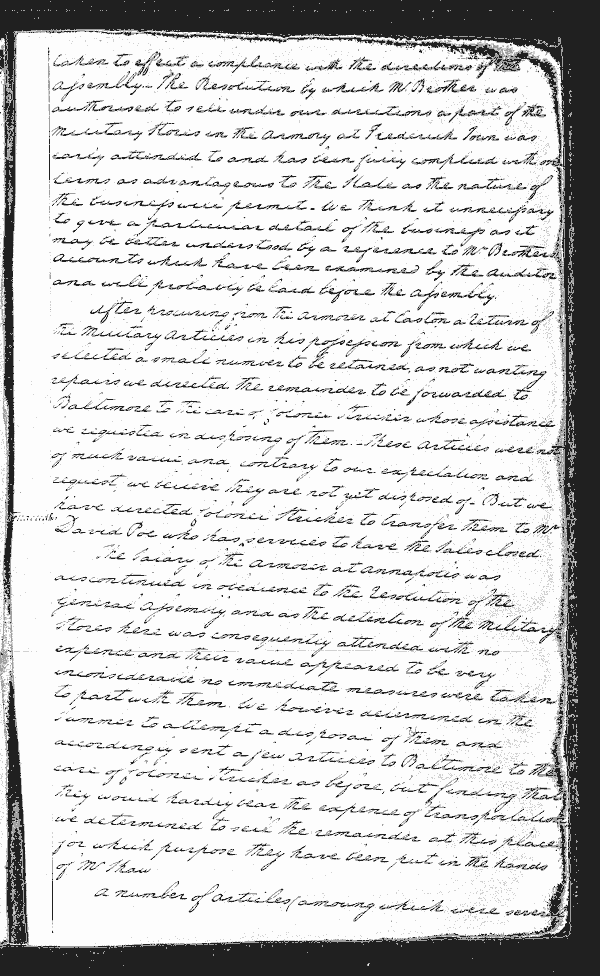 taken to effect a compliance with the directions of the
Assembly. The Resolution by which Mr Brother was
authorised to sell under our directions a part of the
Military Stores in the Armory at Frederick Town was
early attended to and has been fully complied with on
terms as advantageous to the State as the nature of
the business will permit. We think it unnecessary
to give a particular detail of the business as it
may be better understood by a reference to Mr Brothers
Accounts which have been examined by the Auditor
and will probably be laid before the Assembly.
After procuring from the armourer at Easton a return of
the Military Articles in his possession from which we
selected a small number to be retained, as not wanting
repairs we directed the remainder to be forwarded to
Baltimore to the care of Colonel Stricker whose assistance
we requested in disposing of them. These Articles were not
of much value and, contrary to our expectation and
request, we believe they are not yet disposed of. But we
have directed Colonel Stricker to transfer them to Mr
David Poe who has services to have the Sales closed.
The Salary of the Armourer at Annapolis was
discontinued in obedience to the Resolution of the
General Assembly and as the detention of the Military
Stores here was consequently attended with no
expence and their value appeared to be very
inconsiderable no immediate measures were taken
to part with them. We however determined in the
Summer to attempt a disposal of them and
accordingly sent a few articles to Baltimore to the
care of Colonel Stricker as before, but finding that
they would hardly bear the expence of transportation
we determined to sell the remainder at this place
for which purpose they have been put in the hands
of Mr Shaw
A number of articles (amoung which were